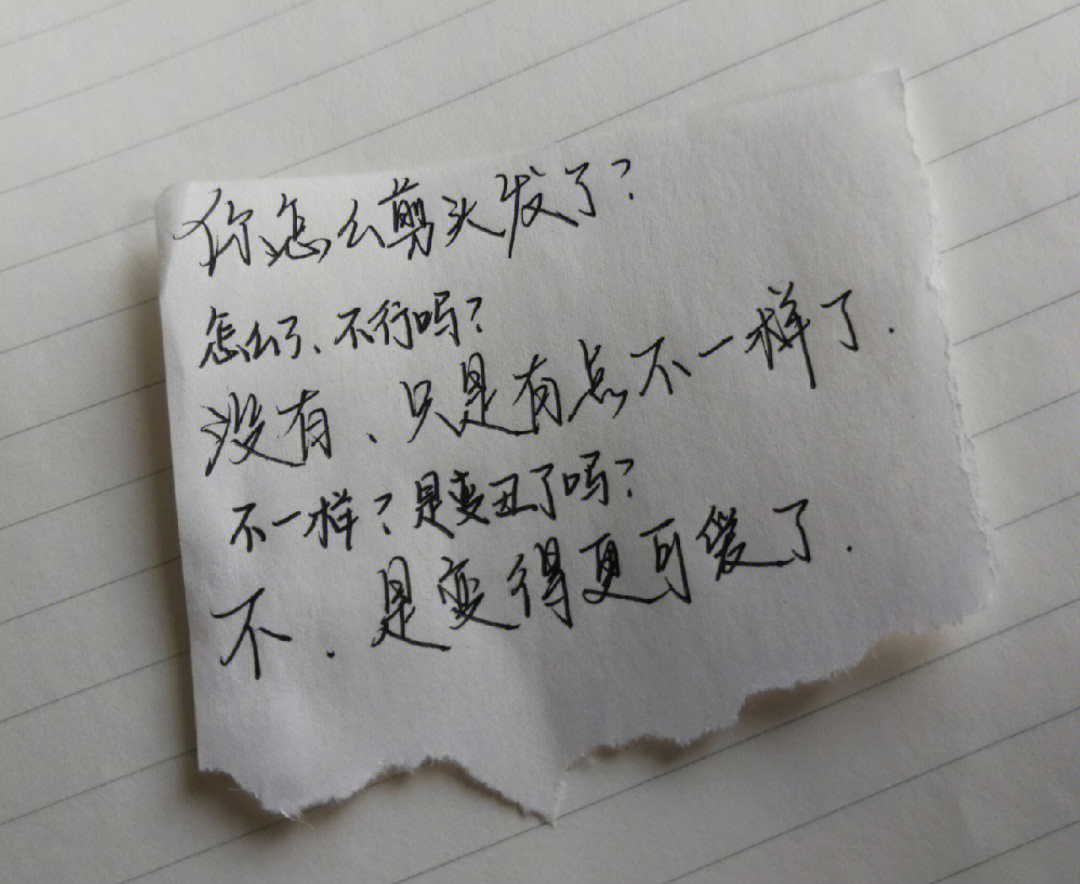 你怎么剪头发了?
怎么了、不行吗?
没有、只是有点不一样了.
不一样?是变丑了吗?
不.是变得更可爱了.